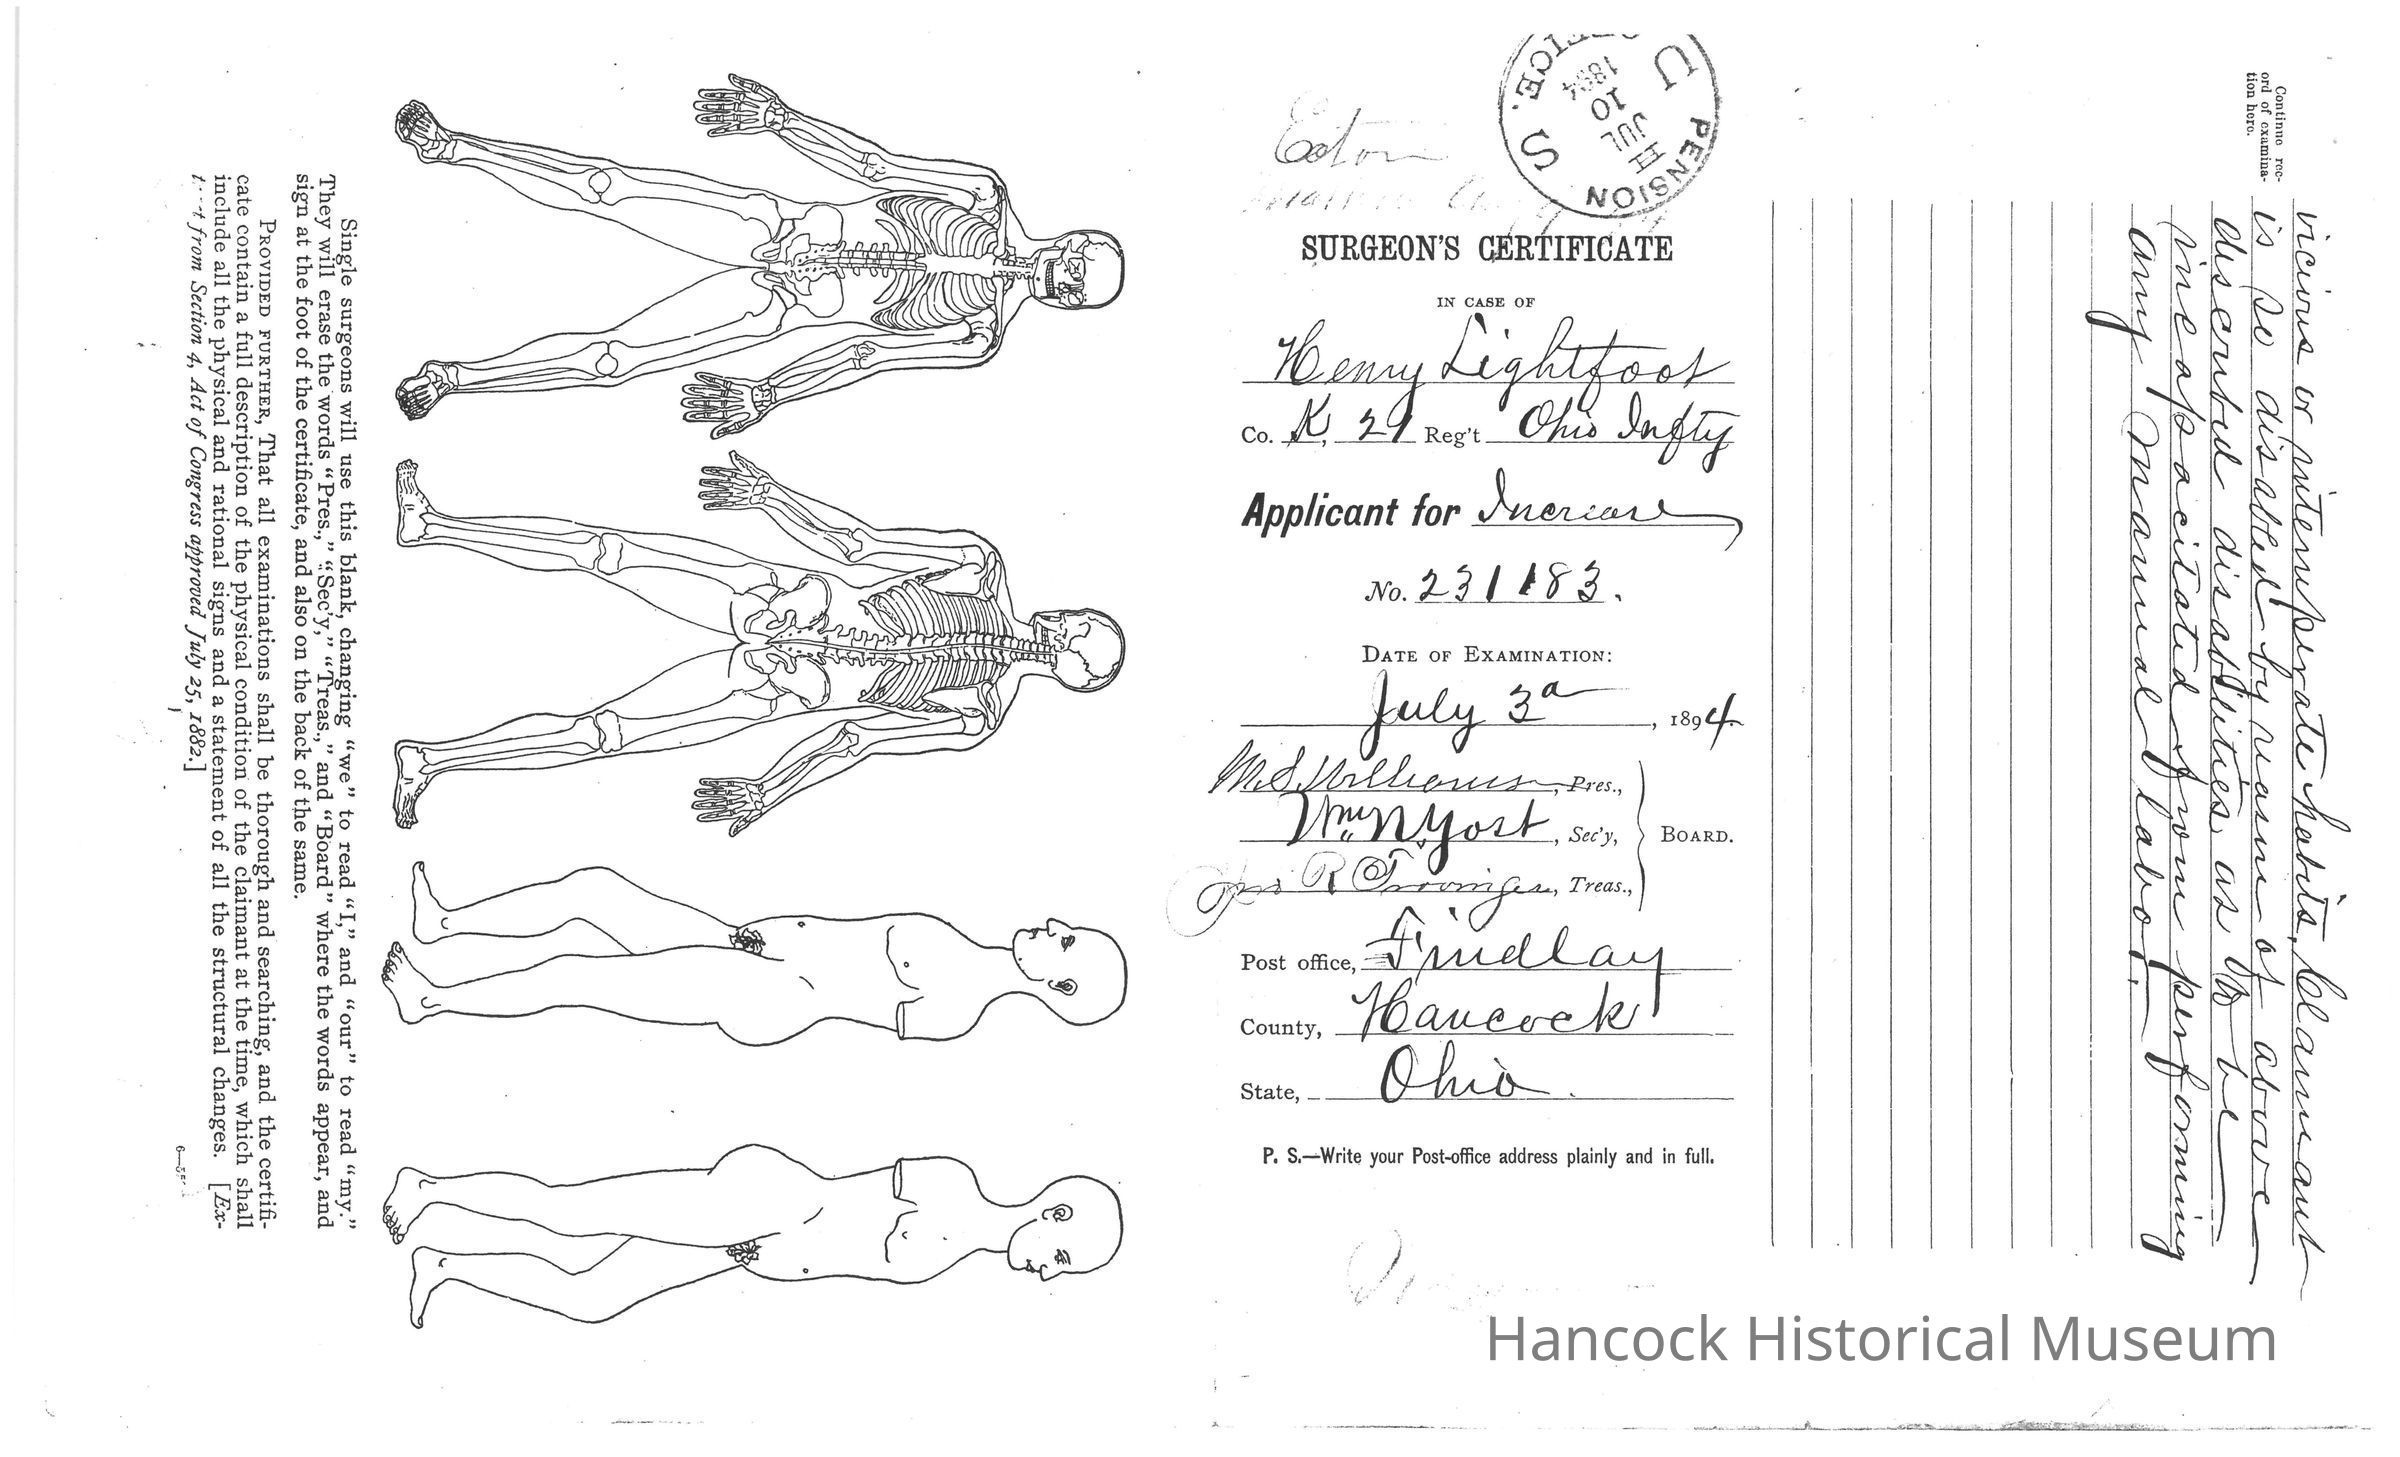 Continue rec-
ord of examina-
tion here.
vicious or intemperate habits. Claimant
is so disabled by reason of above
described disabilities as to be
incapacitated from performing
any manual labor.
U S PENSION OFFICE.
JUL
10
1894
Ecton
SURGEON'S CERTIFICATE
IN CASE OF
Henry Lightfoot
Co. K, 21 Reg't Ohio Infty
Applicant for Increase
No. 231183.
DATE OF EXAMINATION:
July 3d, 1894.
M. S. Williams, Pres.,
Wm N Yost, Sec'y,
BOARD.
R Trovinger, Treas.,
Post office, Findlay
County, Hancock
State, Ohio.
P. S.—Write your Post-office address plainly and in full.
Single surgeons will use this blank, changing "we" to read "I," and "our" to read "my."
They will erase the words "Pres.," "Sec'y," "Treas.," and "Board" where the words appear, and
sign at the foot of the certificate, and also on the back of the same.
PROVIDED FURTHER, That all examinations shall be thorough and searching, and the certifi-
cate contain a full description of the physical condition of the claimant at the time, which shall
include all the physical and rational signs and a statement of all the structural changes. [Ex-
from Section 4, Act of Congress approved July 25, 1882.]
Hancock Historical Museum